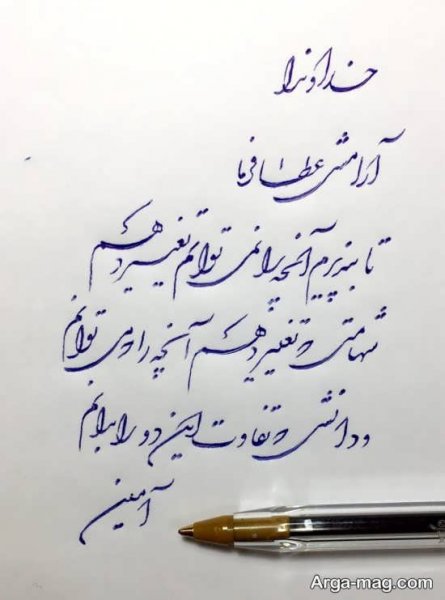 خداوندا
آرامشی عطا فرما
تا بپذیرم آنچه را نمی توانم تغییر دهم
شهامتی تا تغییر دهم آنچه را می توانم
و دانشی تا تفاوت این دو را بدانم
آمین
Arga-mag.com